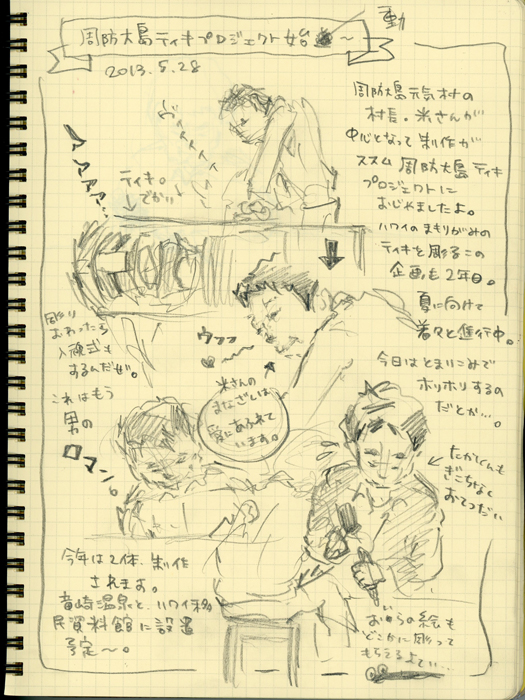 周防大島ティキプロジェクト始動~
2013.5.28
周防大島元気村の
村長・米さんが
中心となって制作が
ススム周防大島ティキ
プロジェクトに
おじゃましたよ。
ハワイのまもりがみの
ティキを彫るこの
企画も2年目。
夏に向けて
着々と進行中。
今日はとまりこみで
ホリホリするの
だとか…。
ティキ。
でかい
ウフフ
米さんの
まなざしは
愛にあふれて
います。
彫り
おわったら
入魂式も
するんだぜ。
これはもう
男の
ロマン。
たかくんも
ぎこちなく
おてつだい
今年は2体、制作
されます。
竜崎温泉と、ハワイ移
民資料館に設置
予定~。
おいらの絵も
どこかに彫って
もらえるよてい…